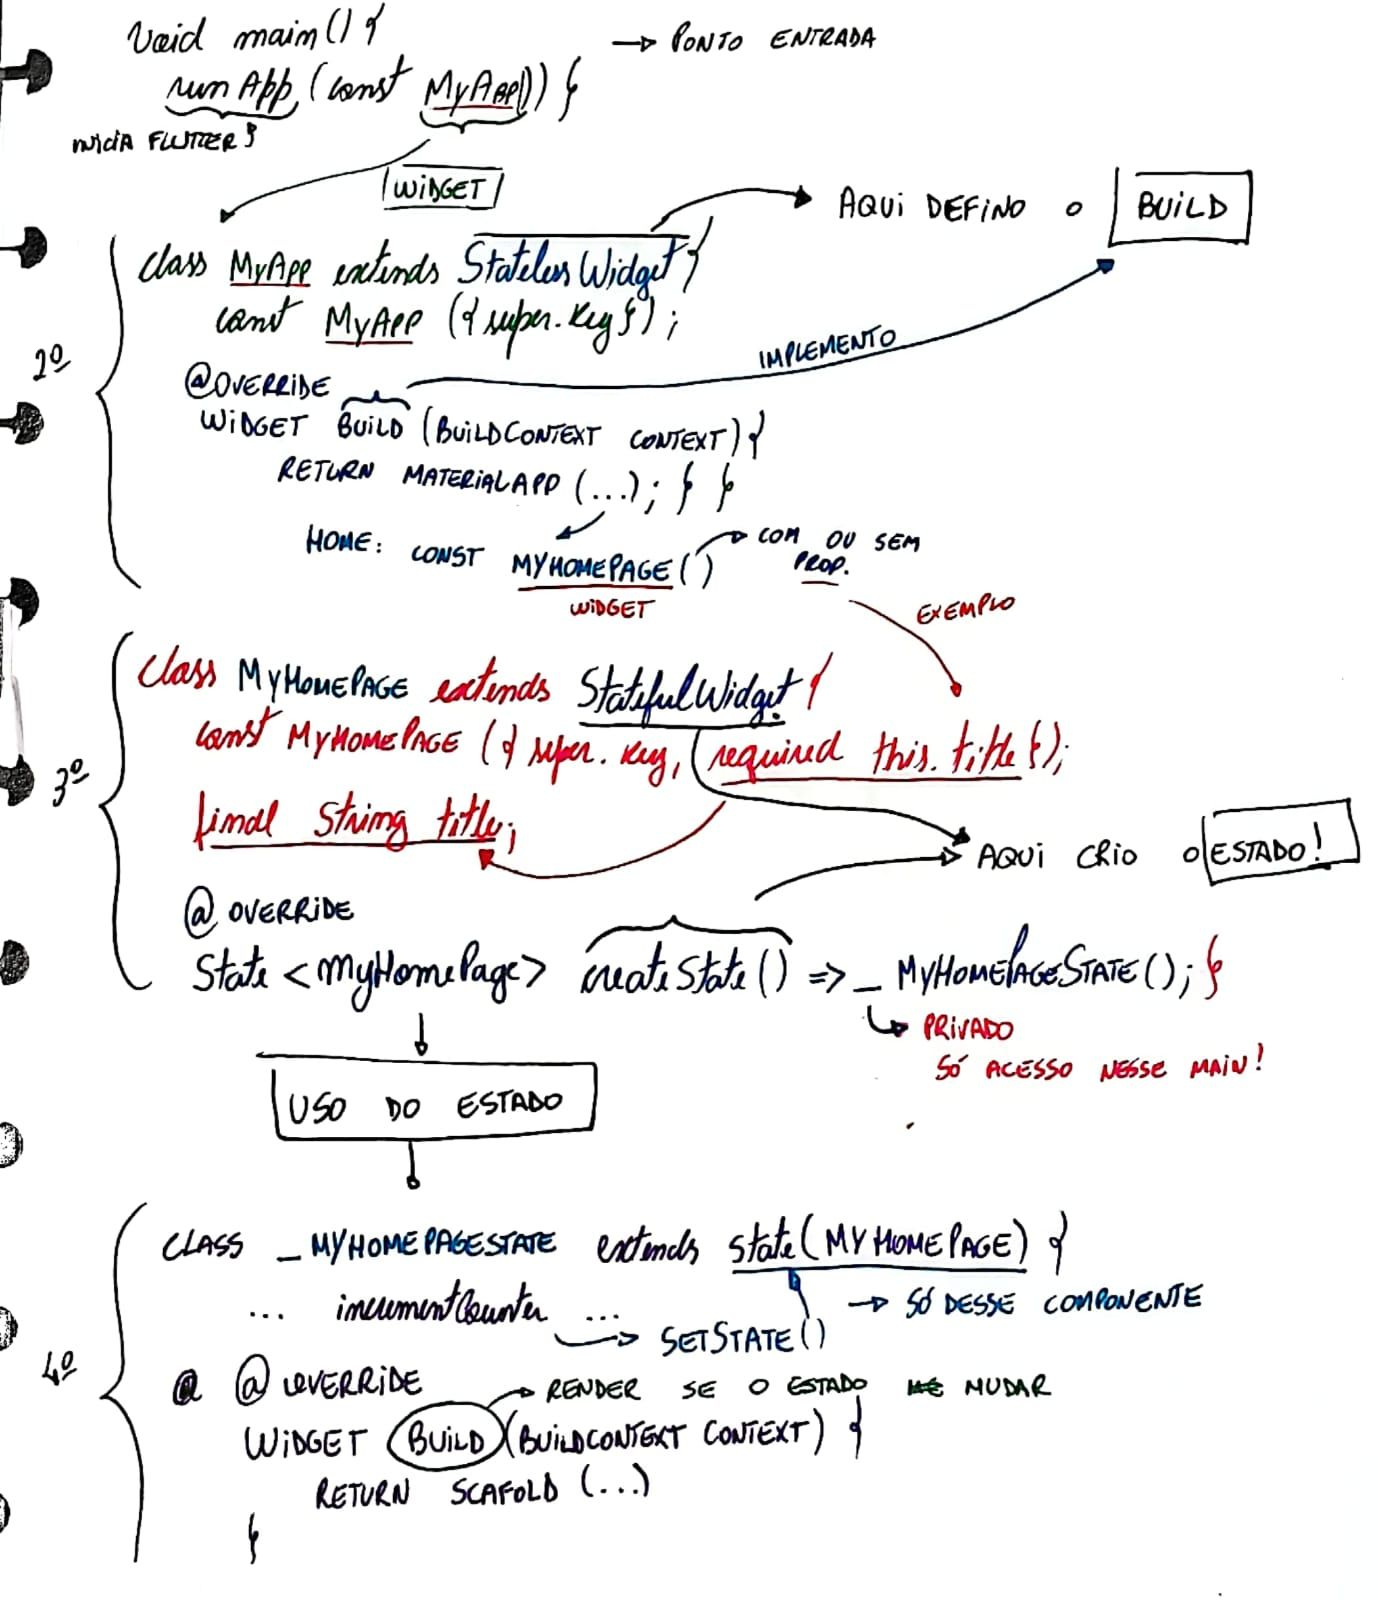 void main() {
→ PONTO ENTRADA
runApp (const MyApp()) }
INICIA FLUTTER }
WIDGET
AQUI DEFINO O BUILD
class MyApp extends StatelessWidget {
const MyApp ({ super.key });
IMPLEMENTO
2º
@OVERRIDE
WIDGET BUILD (BUILDCONTEXT CONTEXT) {
RETURN MATERIALAPP (...); } }
HOME: CONST MYHOMEPAGE () → COM OU SEM
PROP.
WIDGET
EXEMPLO
class MYHOMEPAGE extends StatefulWidget {
const MYHOMEPAGE ({ super.key, required this.title });
3º
final String title;
AQUI CRIO O ESTADO!
@ OVERRIDE
State <MyHomePage> createState () => _ MYHOMEPAGESTATE (); }
→ PRIVADO
SÓ ACESSO NESSE MAIN!
USO DO ESTADO
CLASS _ MYHOMEPAGESTATE extends state (MYHOMEPAGE) {
... incrementCounter ...
→ SÓ DESSE COMPONENTE
→ SETSTATE ()
4º
@ @ OVERRIDE
→ RENDER SE O ESTADO MUDAR
WIDGET BUILD (BUILDCONTEXT CONTEXT) {
RETURN SCAFOLD (...)
}